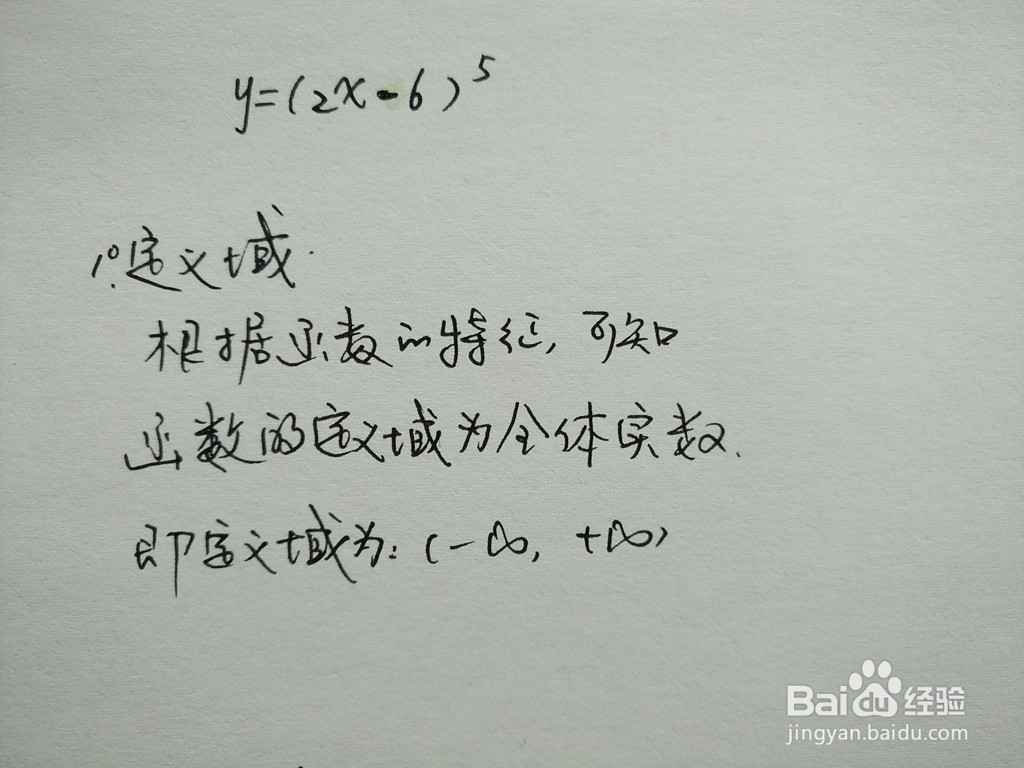 y=(2x-6)⁵
1°.定义域.
根据函数的特征,可知
函数的定义域为全体实数.
即定义域为:(-∞,+∞)
Baidu经验
jingyan.baidu.com